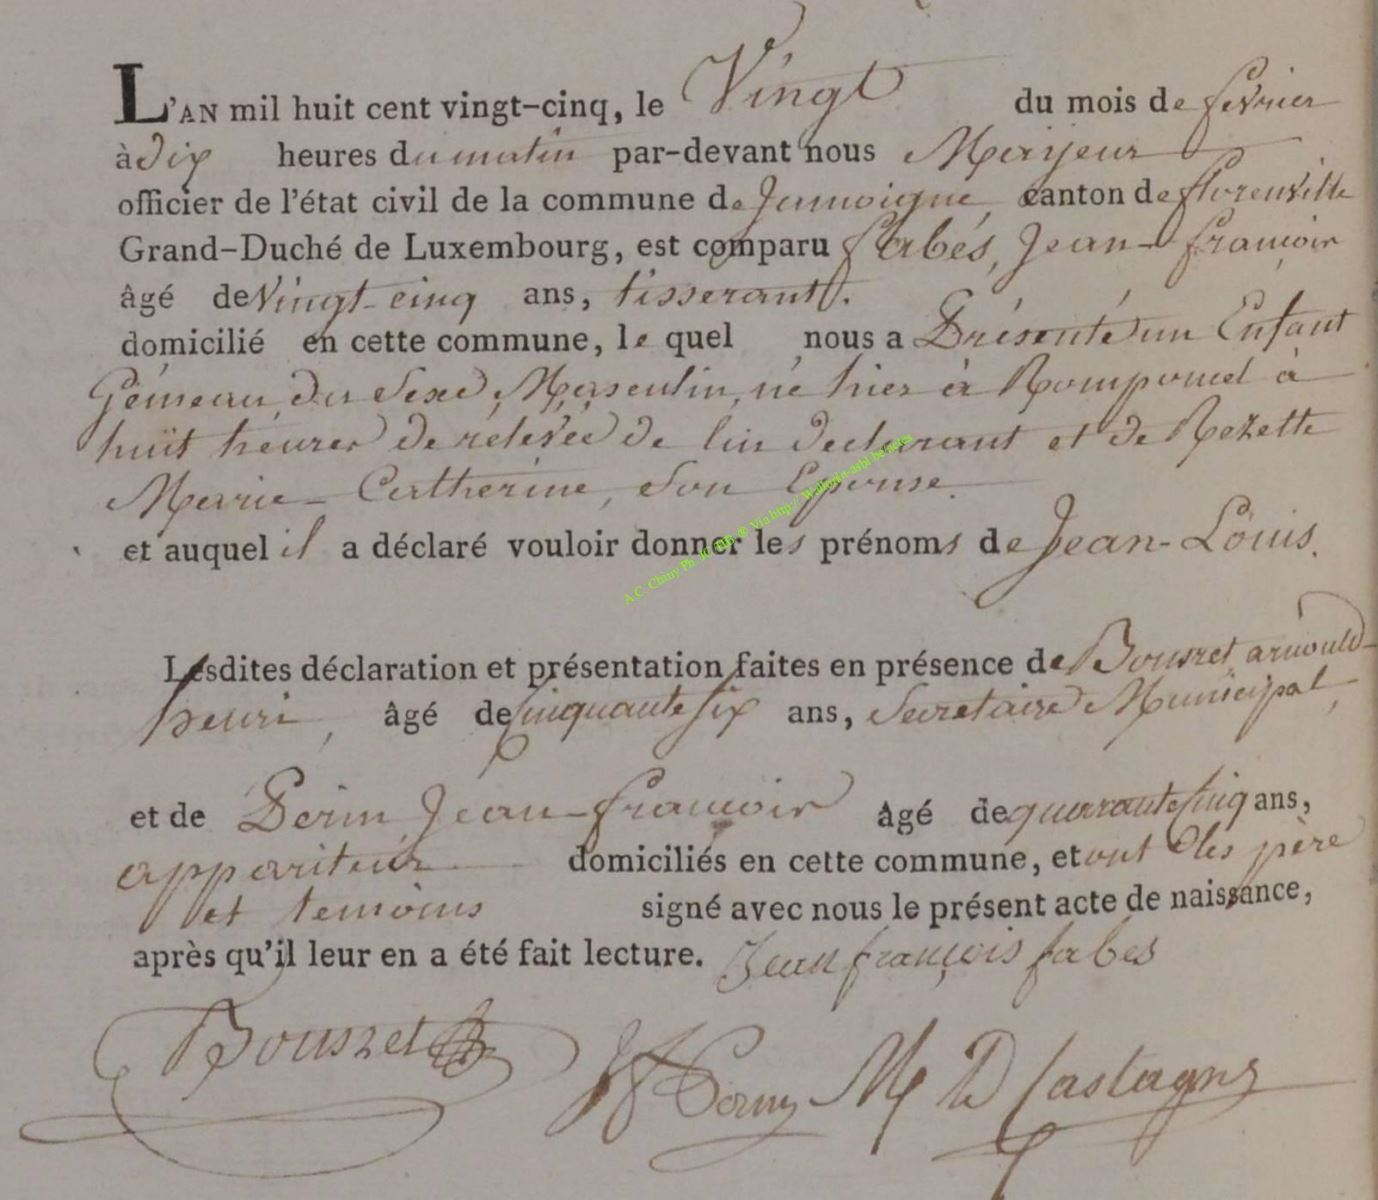 L'AN mil huit cent vingt-cinq, le Vingt du mois de fevrier
à dix heures du matin par-devant nous Mayeur
officier de l'état civil de la commune de Jamoigne, canton de florenville
Grand-Duché de Luxembourg, est comparu fabés, Jean-françois
âgé de Vingt-cinq ans, tisserant.
domicilié en cette commune, le quel nous a Présenté un Enfant
Gémeau, du Sexe Masculin, né hier à Romponcel à
huit heures de relevée de lui declarant et de Rezette
Marie-Catherine, Son Epouse.
et auquel il a déclaré vouloir donner les prénoms de Jean-Louis.
Lesdites déclaration et présentation faites en présence de arnould
henri, âgé de Cinquante Six ans, Secretaire Municipal,
et de Perin Jean-françois âgé de quarante Cinq ans,
appariteur domiciliés en cette commune, et ont les père
et temoins signé avec nous le présent acte de naissance,
après qu'il leur en a été fait lecture. Jean françois fabes
A.C. Chiny Via http:// Wallonia-asbl be/actes